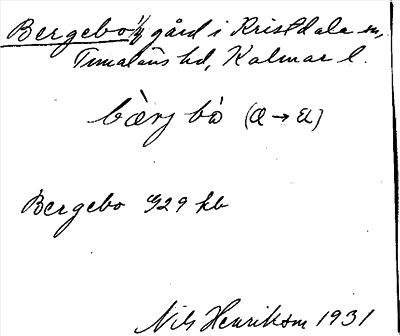 Bergebo 1/4 gård i Kristdala sn,
Tunaläns hd, Kalmar l.
bærj bo (a → a)
Bergebo 929 kb
Nils Henrikson 1931